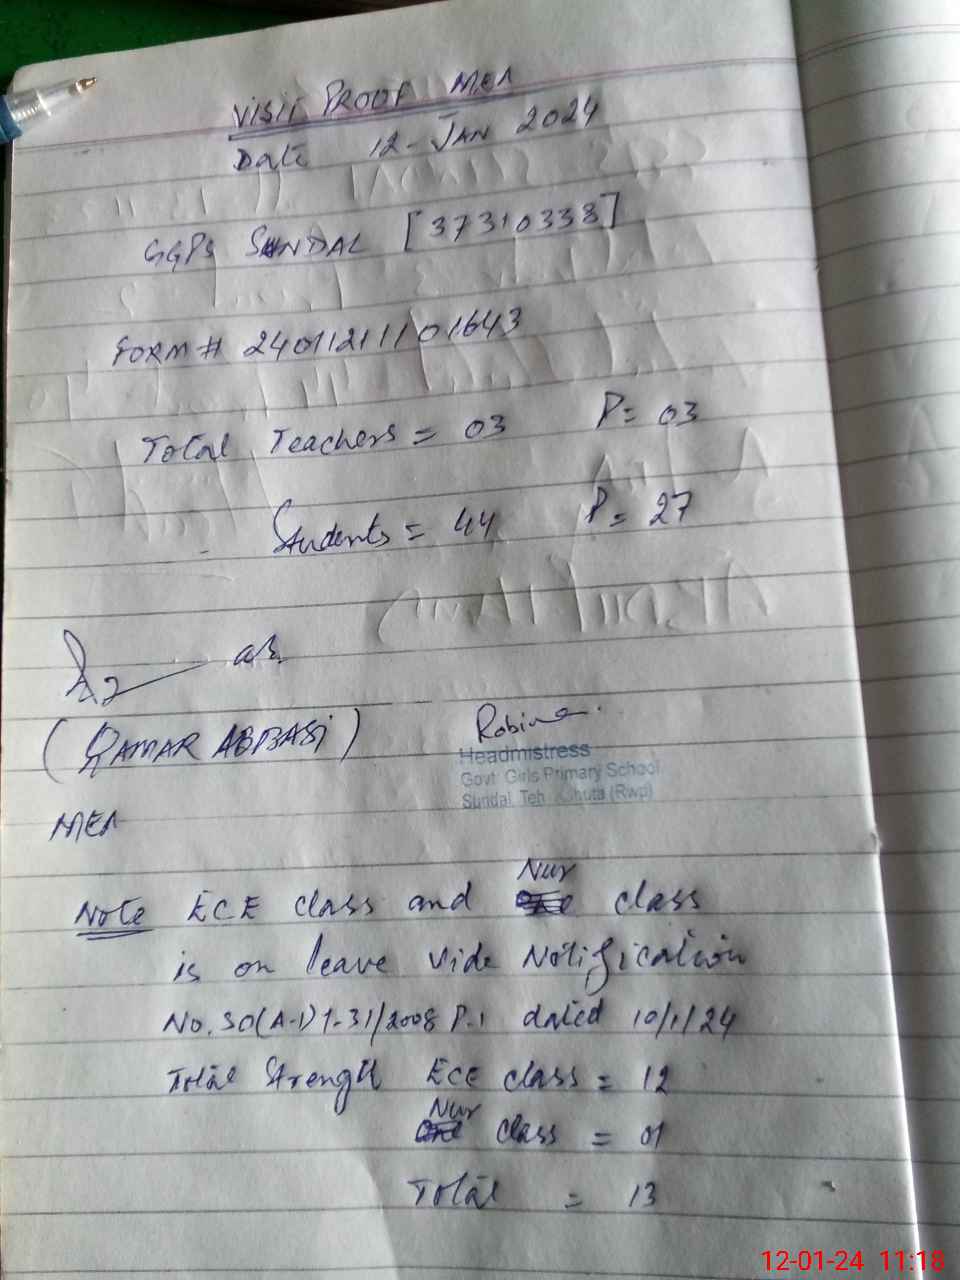 VISIT PROOF MEA
Date 12-JAN 2024
GGPS SUNDAL [37310338]
FORM # 2401121101643
Total Teachers = 03 P= 03
Students = 44 P= 27
(QAMAR ABBASI)
Robina
Headmistress
Govt Girls Primary School
Sundal Teh Kahuta (Rwp)
MEA
Note ECE class and Nur class
is on leave vide Notification
No. SO(A-I)1-31/2008 P.1 dated 10/1/24
Total Strength ECE class = 12
Nur class = 01
Total = 13
12-01-24 11:18